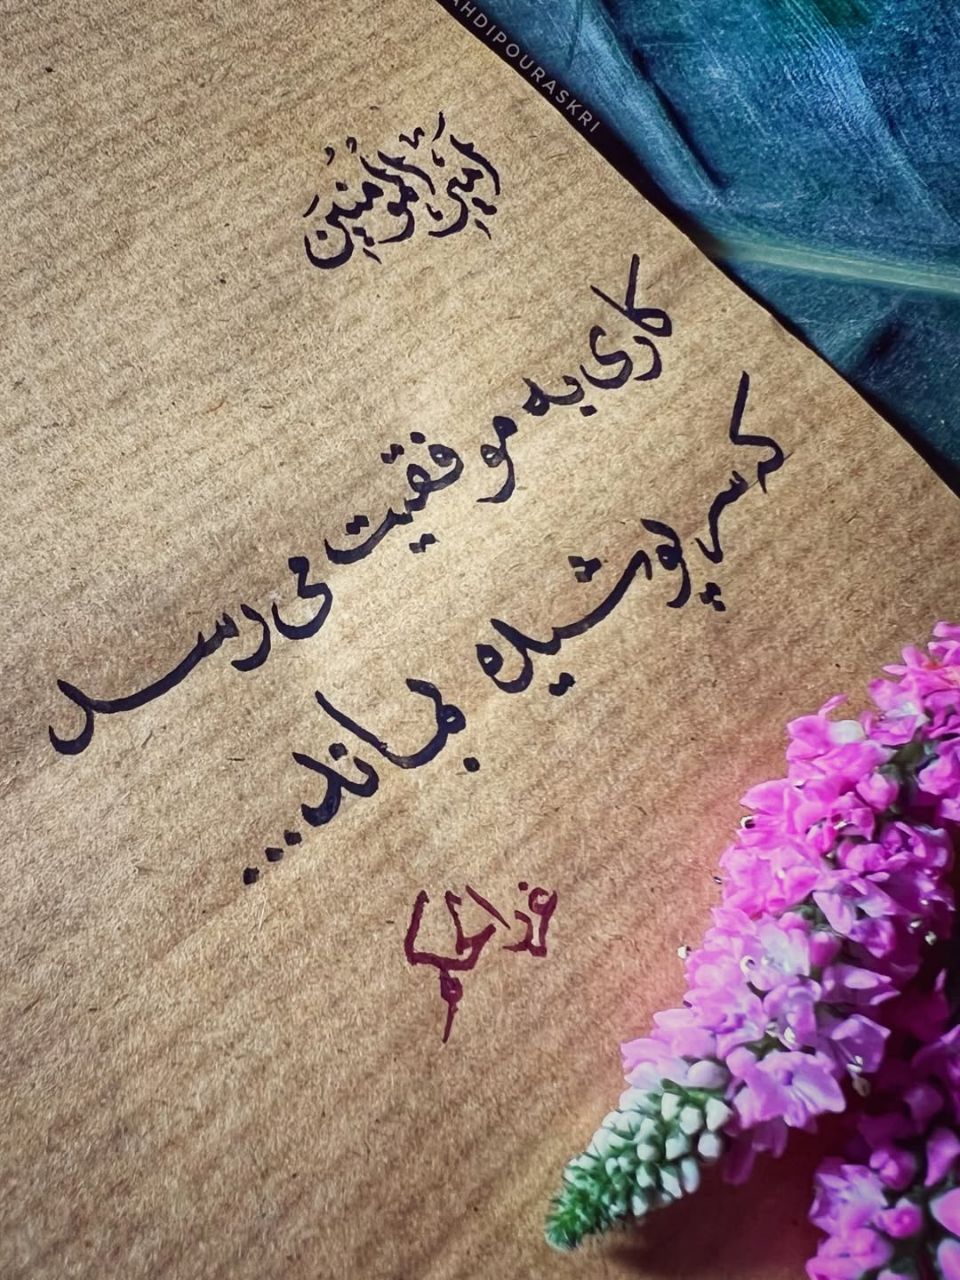 AHDIPOURASKRI
أمیرَ المؤمنینَ
کاری به موفقیت می رسد
که سرپوشیده بماند...